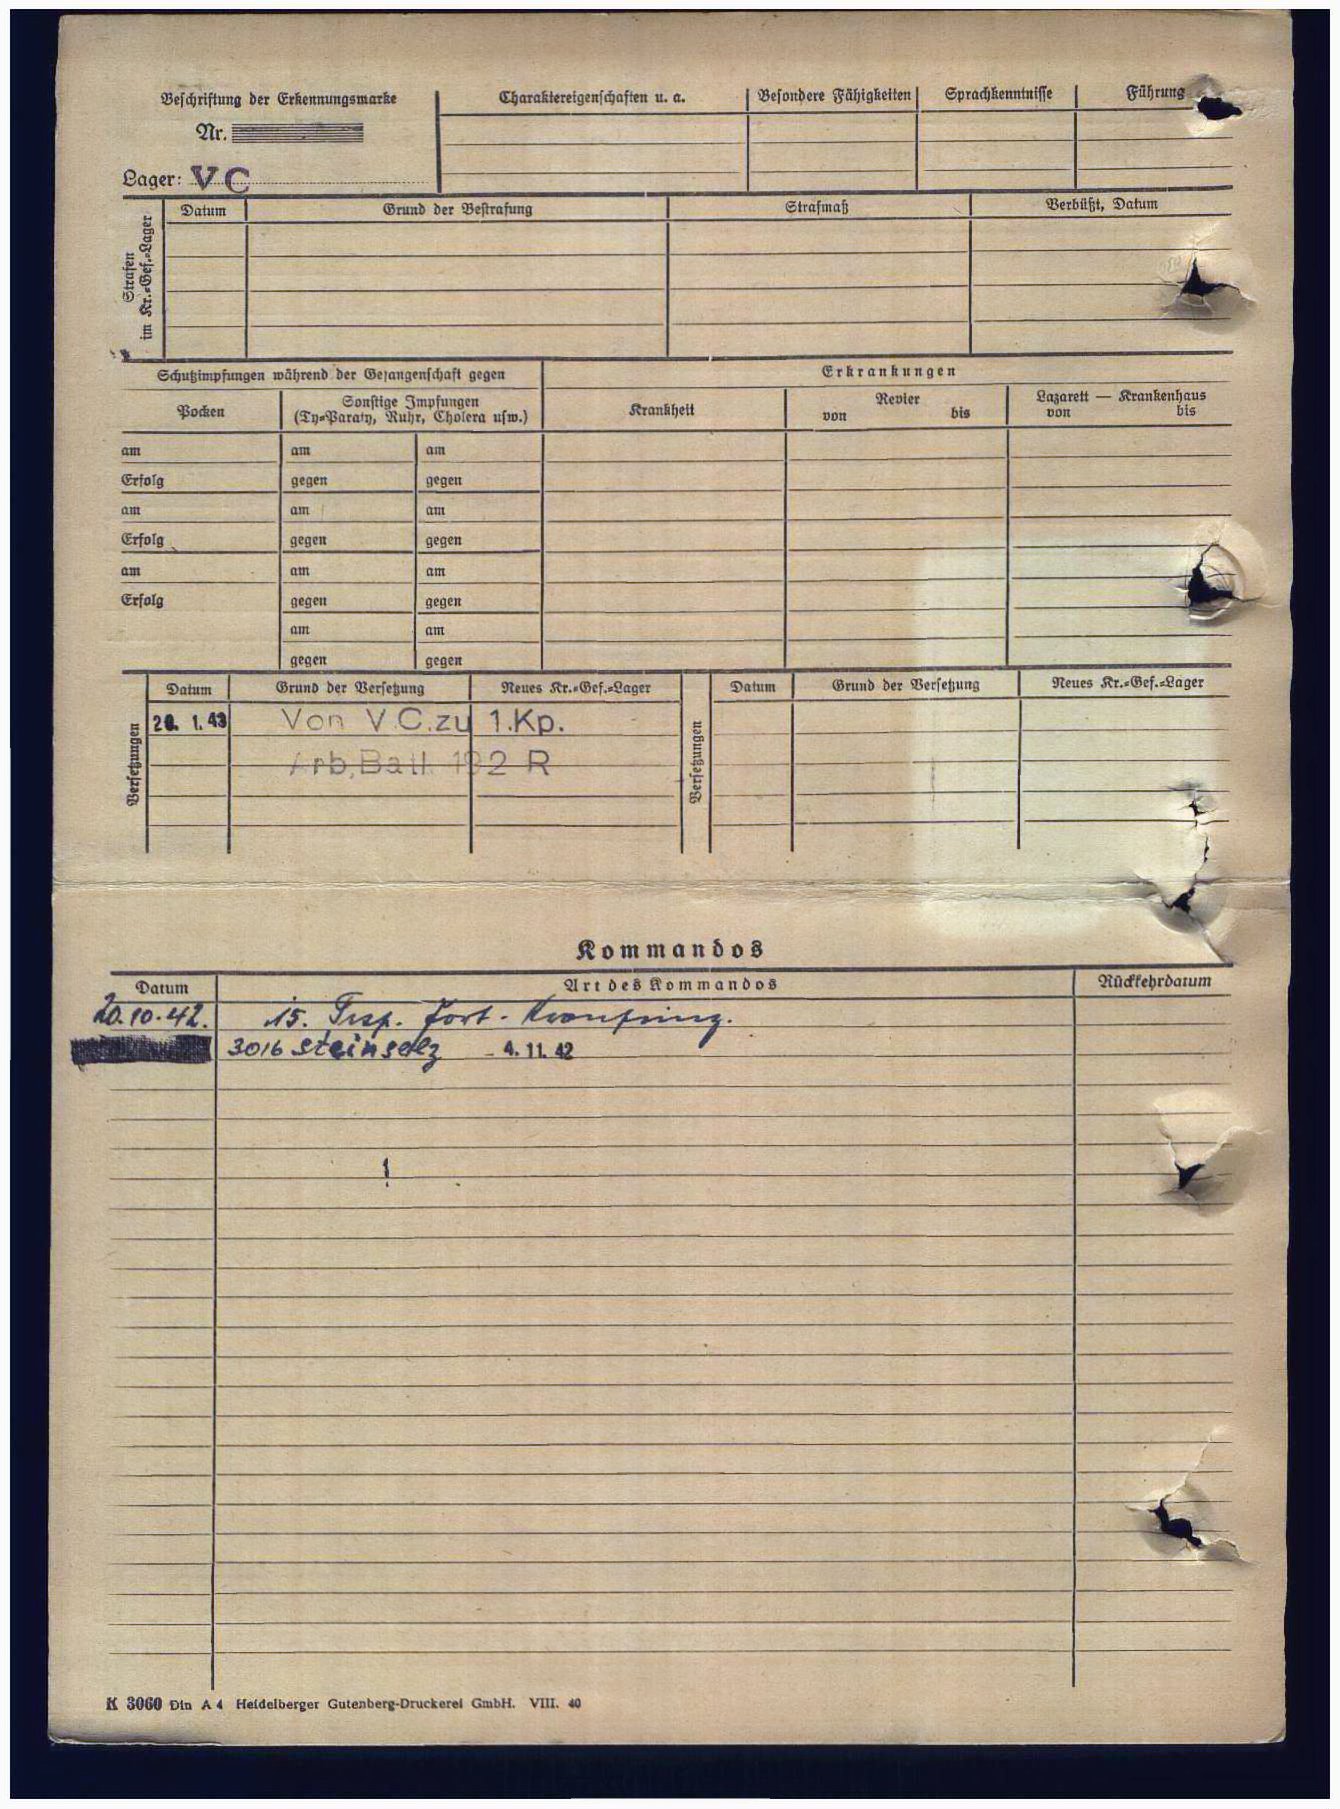 Beschriftung der Erkennungsmarke
Nr.
Lager: V C
Charaktereigenschaften u. a.
Besondere Fähigkeiten
Sprachkenntnisse
Führung
Strafen im Kr.-Gef.-Lager
Datum
Grund der Bestrafung
Strafmaß
Verbüßt, Datum
Schutzimpfungen während der Gefangenschaft gegen
Erkrankungen
Pocken
Sonstige Impfungen
(Ty-Paraty, Ruhr, Cholera usw.)
Krankheit
Revier
von bis
Lazarett — Krankenhaus
von bis
am am am
Erfolg gegen gegen
am am am
Erfolg gegen gegen
am am am
Erfolg gegen gegen
am am
gegen gegen
Versetzungen
Datum Grund der Versetzung Neues Kr.-Gef.-Lager
1. 43 Von V C. zu 1. Kp.
Arb, Batl. 192 R
Versetzungen
Datum Grund der Versetzung Neues Kr.-Gef.-Lager
Kommandos
Datum Art des Kommandos Rückkehrdatum
20.10.42. 15. Trsp. Fort-
3016 Steinselz - 4. 11. 42
K 3060 Din A 4 Heidelberger Gutenberg-Druckerei GmbH. VIII. 40